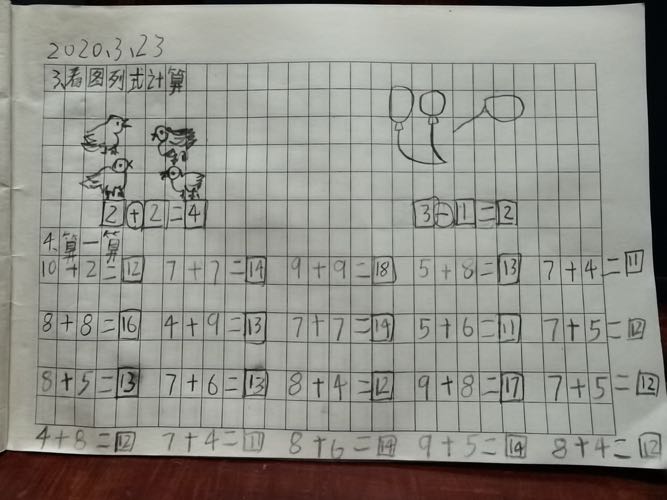 2020.3.23
3.看图列式计算
2+2=4 3-1=2
4.算一算
10+2=12 7+7=14 9+9=18 5+8=13 7+4=11
8+8=16 4+9=13 7+7=14 5+6=11 7+5=12
8+5=13 7+6=13 8+4=12 9+8=17 7+5=12
4+8=12 7+4=11 8+6=14 9+5=14 8+4=12